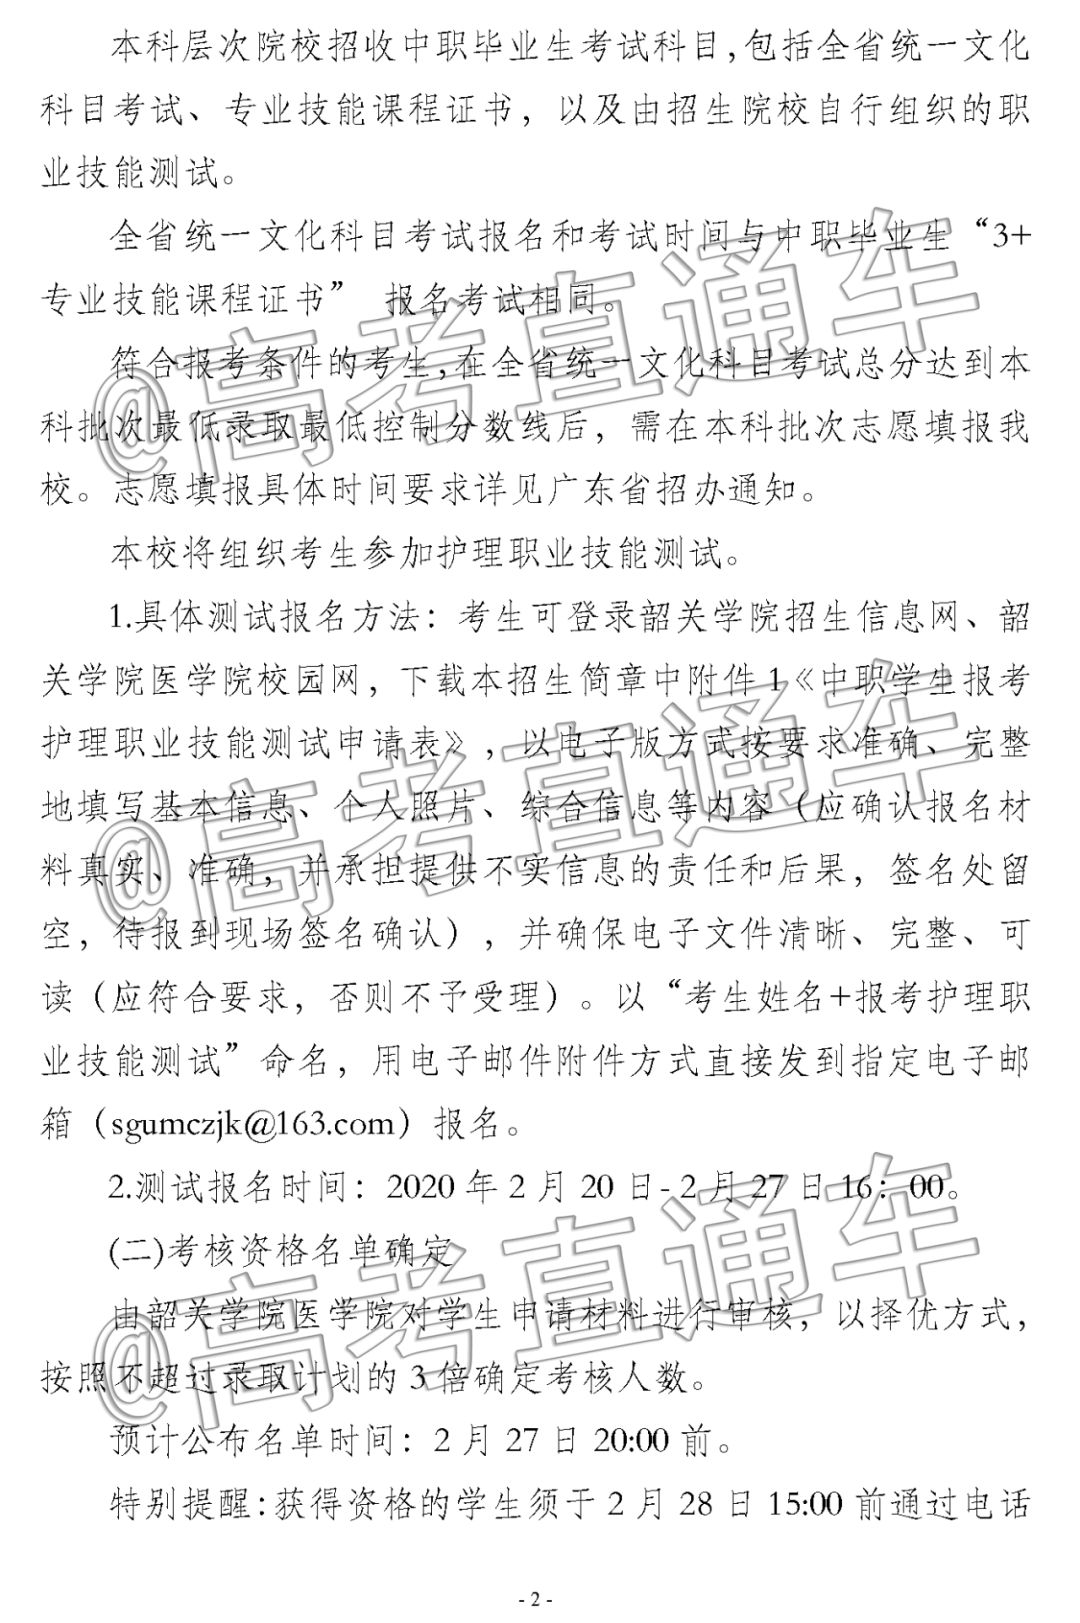 本科层次院校招收中职毕业生考试科目,包括全省统一文化
科目考试、专业技能课程证书，以及由招生院校自行组织的职
业技能测试。
全省统一文化科目考试报名和考试时间与中职毕业生“3+
专业技能课程证书” 报名考试相同。
符合报考条件的考生,在全省统一文化科目考试总分达到本
科批次最低录取最低控制分数线后，需在本科批次志愿填报我
校。志愿填报具体时间要求详见广东省招办通知。
本校将组织考生参加护理职业技能测试。
1.具体测试报名方法：考生可登录韶关学院招生信息网、韶
关学院医学院校园网，下载本招生简章中附件1《中职学生报考
护理职业技能测试申请表》，以电子版方式按要求准确、完整
地填写基本信息、个人照片、综合信息等内容（应确认报名材
料真实、准确，并承担提供不实信息的责任和后果，签名处留
空，待报到现场签名确认），并确保电子文件清晰、完整、可
读（应符合要求，否则不予受理）。以“考生姓名+报考护理职
业技能测试”命名，用电子邮件附件方式直接发到指定电子邮
箱（sgumczjk@163.com）报名。
2.测试报名时间：2020年2月20日-2月27日16：00。
(二)考核资格名单确定
由韶关学院医学院对学生申请材料进行审核，以择优方式，
按照不超过录取计划的3倍确定考核人数。
预计公布名单时间：2月27日20:00前。
特别提醒:获得资格的学生须于2月28日15:00前通过电话
- 2 -
@高考直通车
@高考直通车
@高考直通车